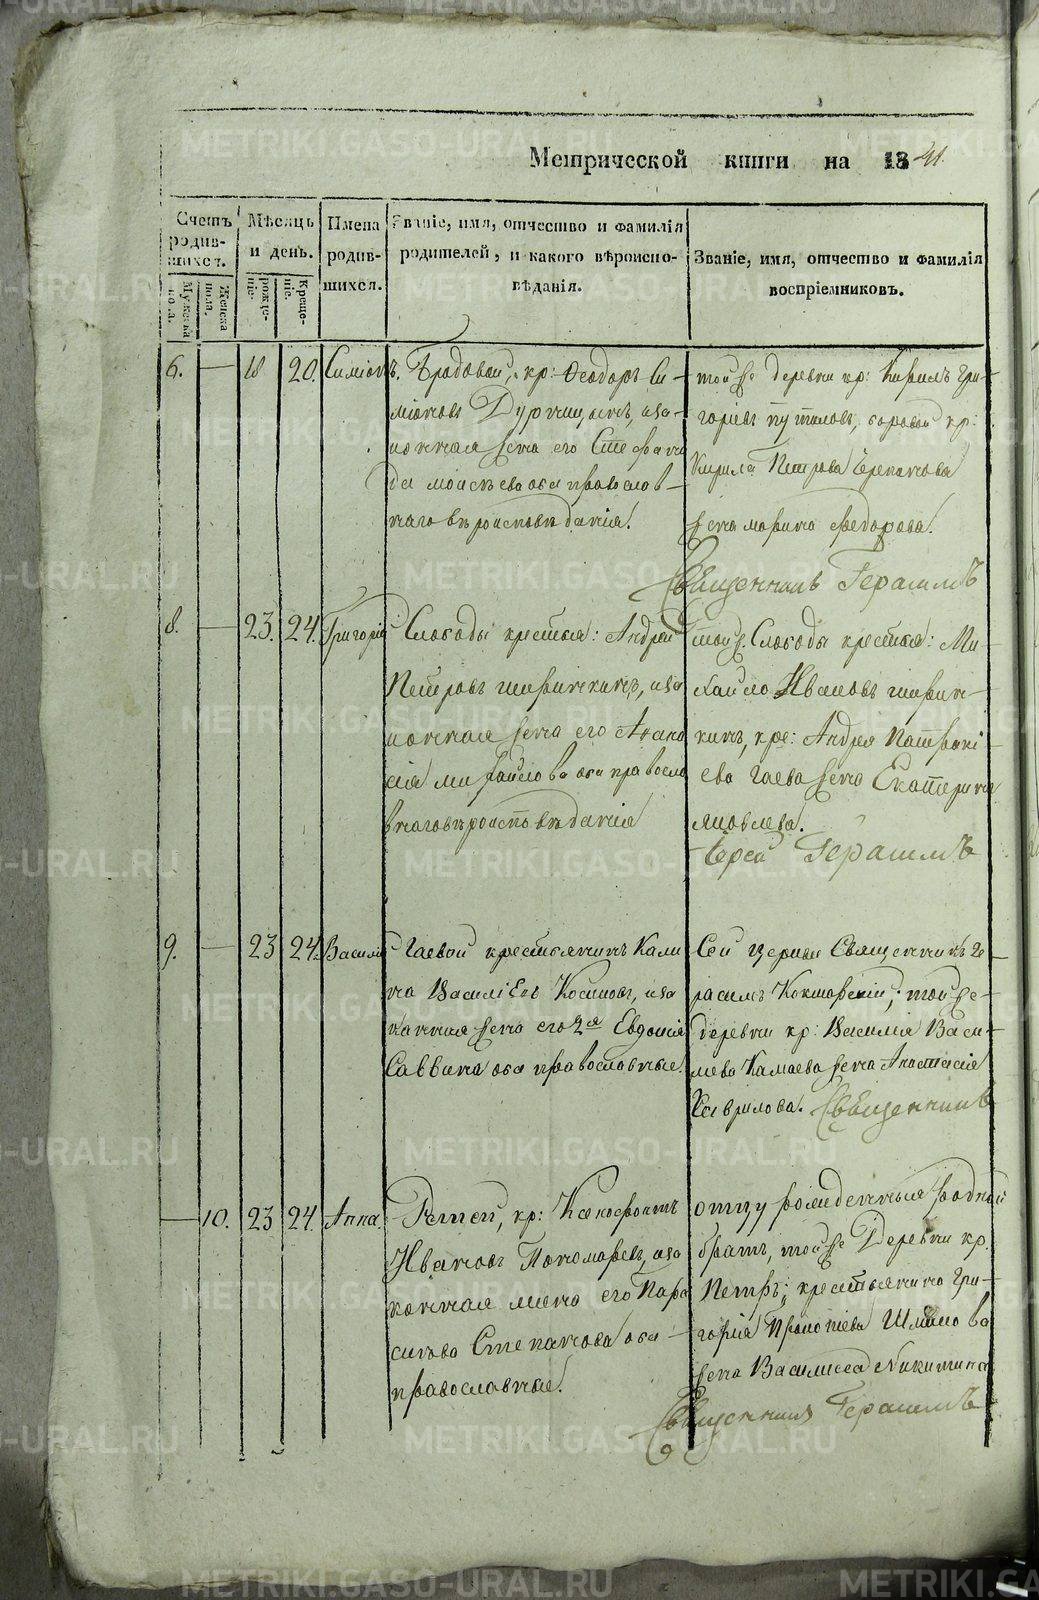 Метрической книги на 1841.
Счетъ родив-шихся.
Мужеска пола.
Женска пола.
Мѣсяцъ и день.
рожде-ніе.
Креще-ніе.
Имена родив-шихся.
Званіе, имя, отчество и фамилія
родителей, и какого вѣроиспо-
вѣданія.
Званіе, имя, отчество и фамилія
воспріемниковъ.
6. — 18 20. Симіонъ.
Бродовой, кр: Ѳеодоръ Си-
міоновъ
его Стефани
да Моисѣева оба православ-
наго вѣроисповѣданія.
той же деревни кр: Кирилъ Гри-
горіевъ Путиловъ, кр:
Кирила Петрова
жена Марина Федорова.
Священникъ Герасимъ
8. — 23. 24. Григорій
Слободы крестья: Андрей
Петровъ Ширинкинъ, зако-
нная жена его Анана
сія Михайлова оба правосла
внаго вѣроисповѣданія
той ж. Слободы крестья: Ми-
хайло Ивановъ Ширин-
кинъ, кре: Андрея Патрикі-
ева Гаева жена Екатерина
Яковлева.
Іерей Герасимъ
9. — 23 24. Василій
Гаевой крестьянинъ Кали
на Василіевъ Косиковъ, зако
нная жена его 2я Евдокія
Саввина оба православные.
Сей церкви Священникъ Ге-
расимъ Кокшарскій; той же
деревни кр: Василія Васи-
льева Камаева жена Анастасія
Гаврилова. Священникъ
— 10. 23 24. Анна.
Ретей, кр: Ксенофонтъ
Ивановъ Пономаревъ, зако
нная жена его Пара
скова Степанова оба
православные.
отцу рожденныя родной
братъ, той же Деревни кр.
Петръ; крестьянина Гри-
горія Прокопіева
жена Василисса Никитина
Священникъ Герасимъ
METRIKI.GASO-URAL.RU